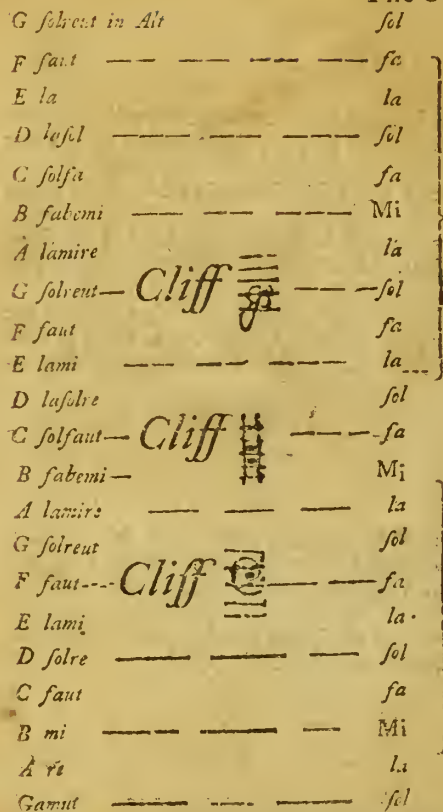 G ſolreut in Alt ſol
F faut — — — — fa
E la la
D laſol — — — ſol
C ſolfa fa
B fabemi — — — Mi
A lamire la
G ſolreut— Cliff —ſol
F faut fa
E lami — — — la
D laſolre ſol
C ſolfaut— Cliff — —fa
B fabemi— Mi
A lamire — — — la
G ſolreut ſol
F faut---- Cliff — —fa
E lami la
D ſolre — — — ſol
C faut fa
B mi — — — Mi
A re la
Gamut — — — ſol